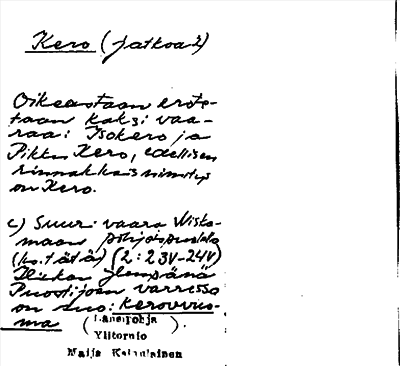 Kero (jatkoa 2)
Oikeastaan erote-
taan kaksi vaa-
raa: Isokero ja
Pikku Kero, edellisen
rinnakkaisnimitys
on Kero.
c) Suuri vaara Wiska-
maan pohjoispuolella
(ks. tätä) (2: 23V-24V)
ylempänä
Puostijoen varressa
on suo: Kerovuo-
ma (Länsipohja
Ylitornio
Maija Kalaniainen